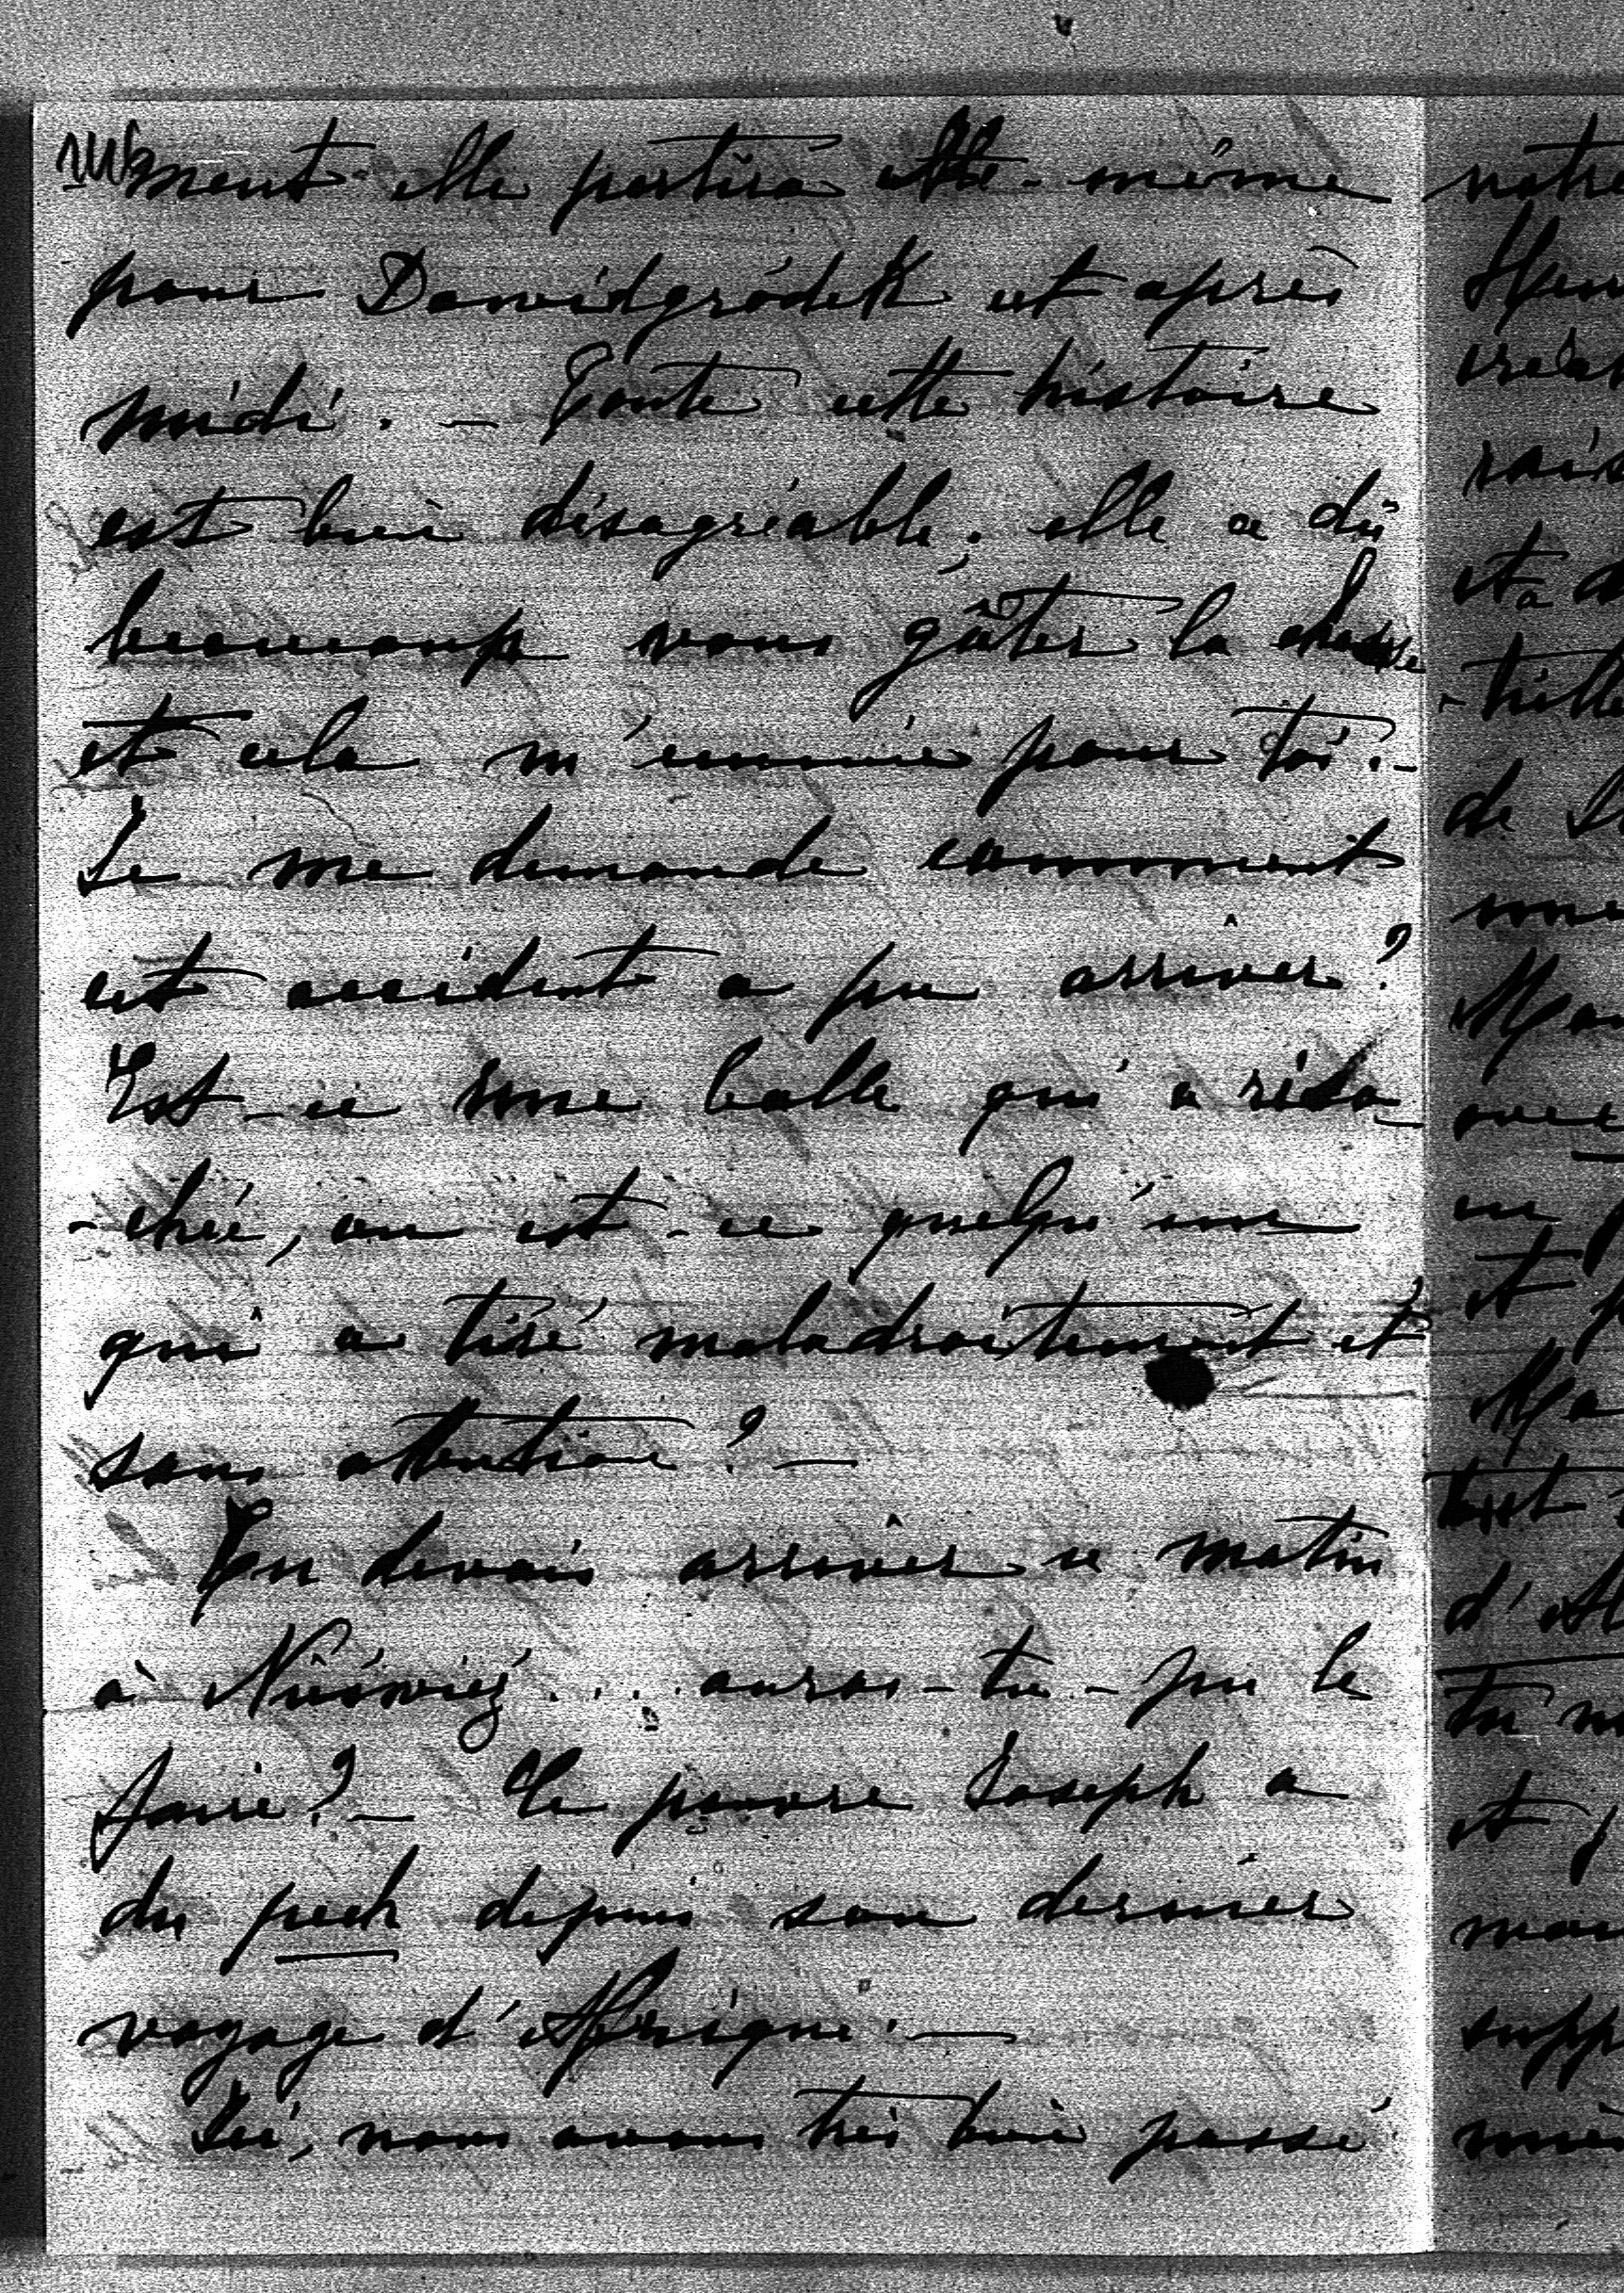 ment elle partira elle-même
pour Dawidgródek cet après
midi. – Toute cette histoire
est bien désagréable; elle a dû
beaucoup vous gâter la chasse
et cela m'ennuie pour toi. –
Je me demande comment
cet accident a pu arriver?
Est-ce une balle qui a rico-
-chée, ou est-ce quelqu'un
qui a tiré maladroitement et
sans attention? –
Tu devais arriver ce matin
à Nieśwież.... auras-tu-pu le
faire? – Le pauvre Joseph a
du pech depuis son dernier
voyage d'Afrique. –
Ici, nous avons très bien passé
notre
et
de
et
et